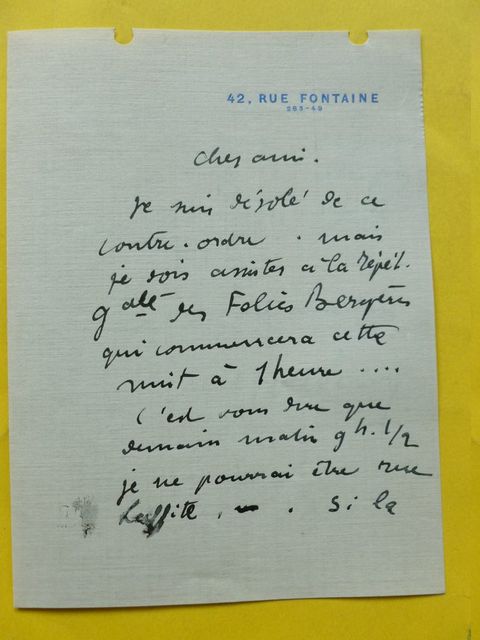 42, RUE FONTAINE
285-49
Cher ami.
Je suis désolé de ce
contre-ordre. mais
je dois assister à la répét.
gale des Folies Bergère
qui commencera cette
nuit à 1 heure ....
C'est vous dire que
demain matin 9 h. 1/2
je ne pourrai être rue
Laffite. - . Si la